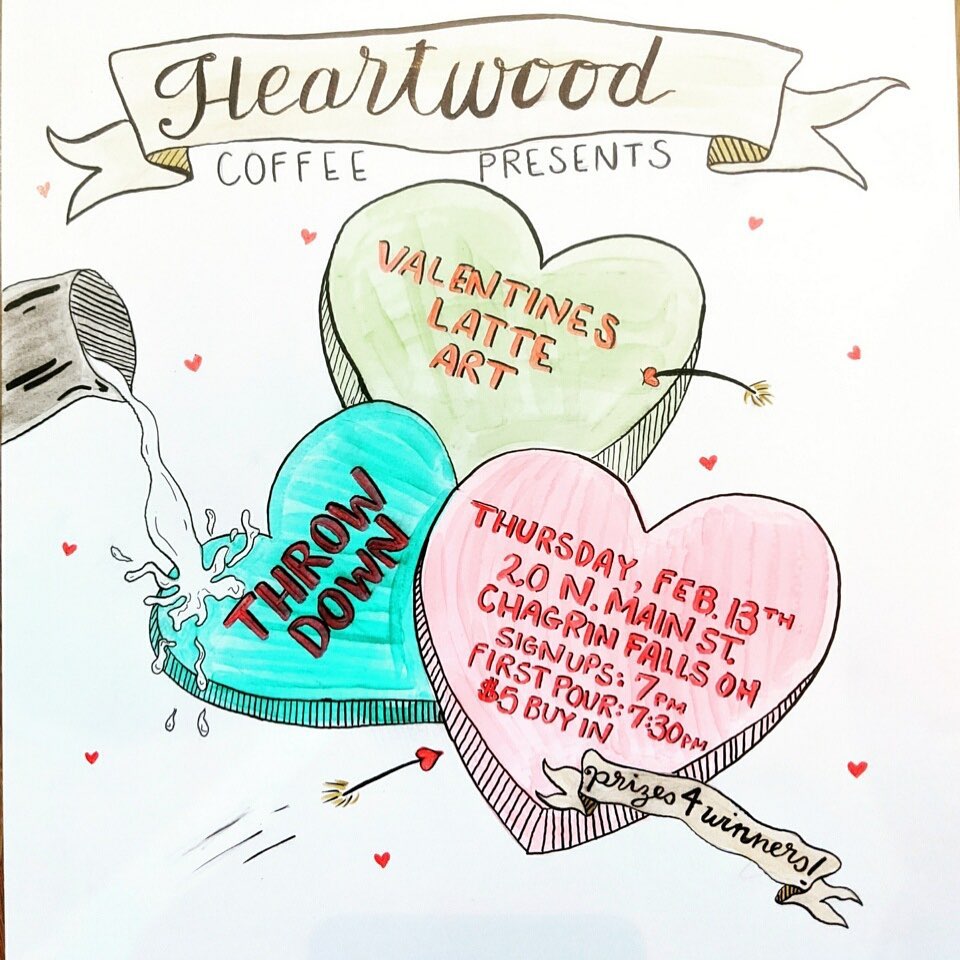 Heartwood
COFFEE PRESENTS
VALENTINES
LATTE
ART
THROW
DOWN
THURSDAY, FEB. 13TH
20 N. MAIN ST.
CHAGRIN FALLS OH
SIGN UPS: 7PM
FIRST POUR: 7:30PM
$5 BUY IN
prizes 4 winners!